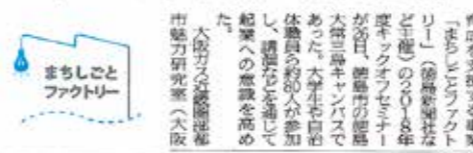 「まちしごとファクト
リー」（徳島新聞社な
ど主催）の2018年
度キックオフセミナー
が26日、徳島市の徳島
大常三島キャンパスで
あった。大学生や自治
体職員ら約80人が参加
し、講演などを通じて
起業への意識を高め
た。
大阪ガス近畿圏部都
市魅力研究室（大阪
まちしごと
ファクトリー